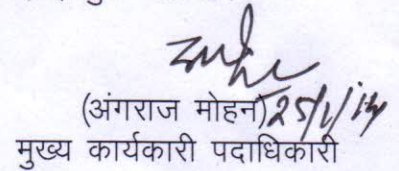 (अंगराज मोहन) 25/1/14
मुख्य कार्यकारी पदाधिकारी